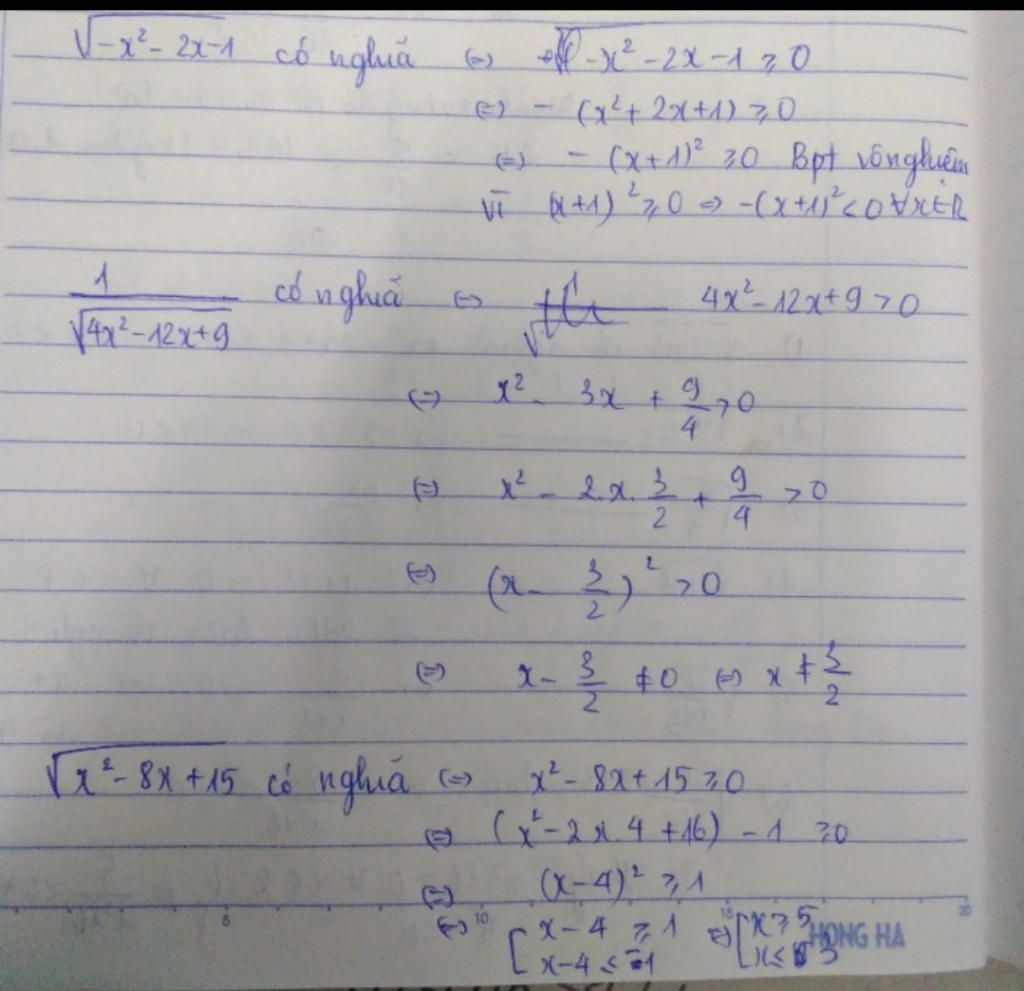 √(-x² - 2x-1) có nghĩa ⇔ -x² - 2x - 1 ≥ 0
⇔ - (x² + 2x + 1) ≥ 0
⇔ - (x + 1)² ≥ 0 Bpt vô nghiệm
Vì (x+1)² ≥ 0 ⇒ -(x+1)² < 0 ∀x∈R
1/√(4x² - 12x + 9) có nghĩa ⇔ 4x² - 12x + 9 > 0
⇔ x² - 3x + 9/4 > 0
⇔ x² - 2.x. 3/2 + 9/4 > 0
⇔ (x - 3/2)² > 0
⇔ x - 3/2 ≠ 0 ⇔ x ≠ 3/2
√(x² - 8x + 15) có nghĩa ⇔ x² - 8x + 15 ≥ 0
⇔ (x² - 2x.4 + 16) - 1 ≥ 0
⇔ (x - 4)² ≥ 1
⇔ [ x - 4 ≥ 1 ⇔ [ x ≥ 5
x - 4 ≤ -1 x ≤ 3
5 10 15 20
HONG HA